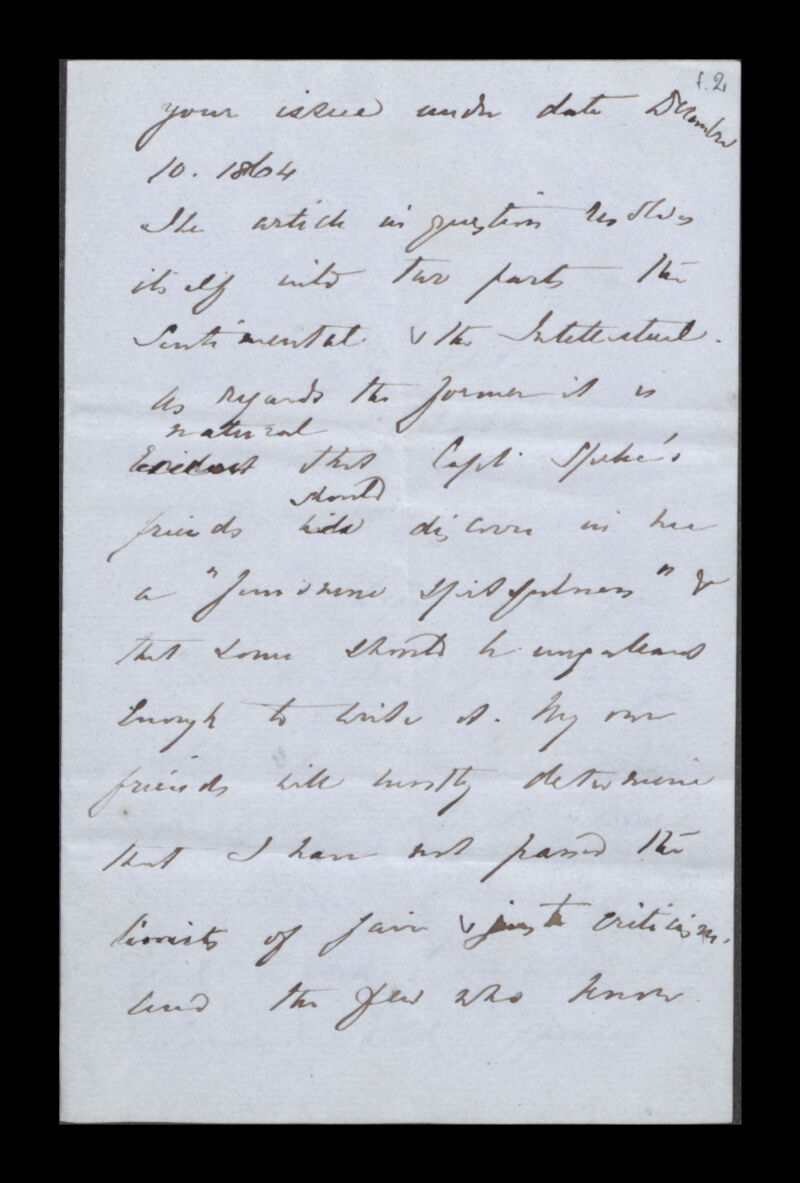 f. 2
your issue under date December
10. 1864
The article in question resolves
itself into two parts the
Sentimental & the Intellectual.
As regards the former it is
natural
Evident that Capt. Speke's
should
friends will discover in me
a "feminine spitefulness" &
that some should be ungallant
enough to write it. My own
friends will mostly determine
that I have not passed the
limits of fair & just criticism.
and the few who know